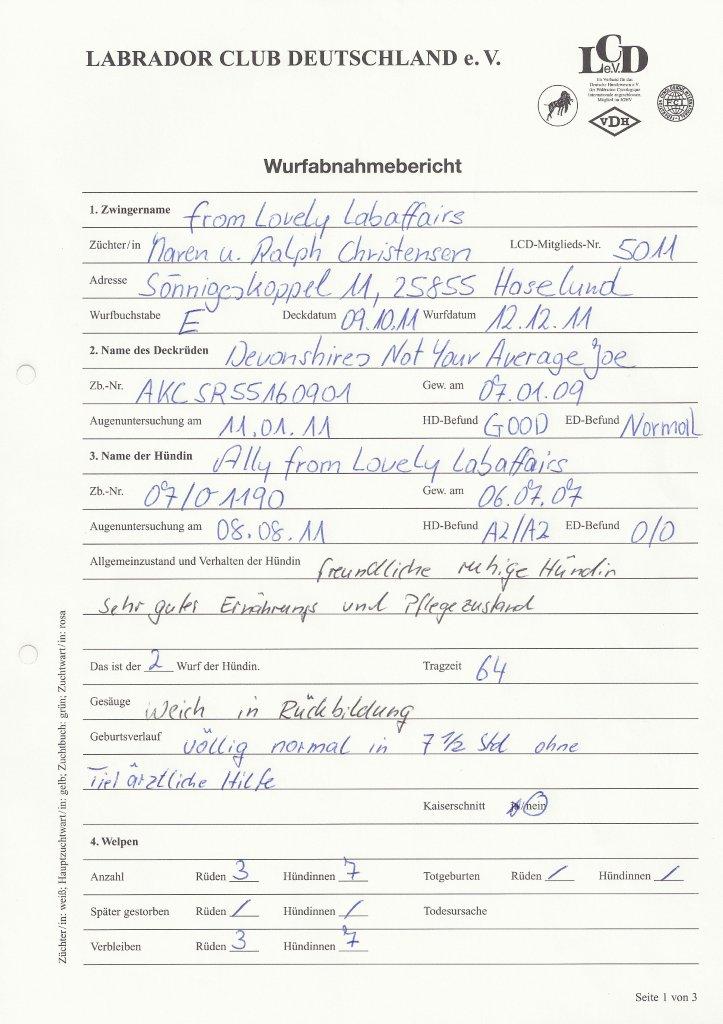 LABRADOR CLUB DEUTSCHLAND e. V.
LCD
e.V.
VDH
FCI
Wurfabnahmebericht
1. Zwingername from Lovely Labaffairs
Züchter/in Maren u. Ralph Christensen LCD-Mitglieds-Nr. 5011
Adresse Sönnigeskoppel 11, 25855 Haselund
Wurfbuchstabe E Deckdatum 09.10.11 Wurfdatum 12.12.11
2. Name des Deckrüden Devonshires Not Your Average Joe
Zb.-Nr. AKC SR55160901 Gew. am 07.01.09
Augenuntersuchung am 11.01.11 HD-Befund GOOD ED-Befund Normal
3. Name der Hündin Ally from Lovely Labaffairs
Zb.-Nr. 07/01190 Gew. am 06.07.07
Augenuntersuchung am 08.08.11 HD-Befund A2/A2 ED-Befund 0/0
Allgemeinzustand und Verhalten der Hündin freundliche ruhige Hündin
sehr guter Ernährungs und Pflegezustand
Das ist der 2 Wurf der Hündin. Tragzeit 64
Gesäuge weich in Rückbildung
Geburtsverlauf völlig normal in 7 1/2 Std ohne
Tierärztliche Hilfe
Kaiserschnitt ja/nein
4. Welpen
Anzahl Rüden 3 Hündinnen 7 Totgeburten Rüden / Hündinnen /
Später gestorben Rüden / Hündinnen / Todesursache
Verbleiben Rüden 3 Hündinnen 7
Seite 1 von 3
Züchter/in: weiß; Hauptzuchtwart/in: gelb; Zuchtbuch: grün; Zuchtwart/in: rosa